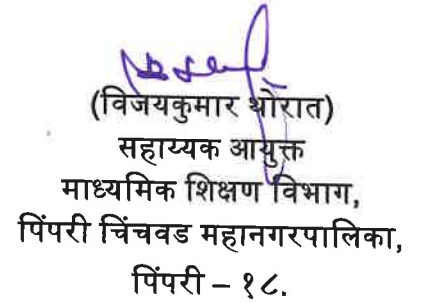 (विजयकुमार थोरात)
सहाय्यक आयुक्त
माध्यमिक शिक्षण विभाग,
पिंपरी चिंचवड महानगरपालिका,
पिंपरी – १८.